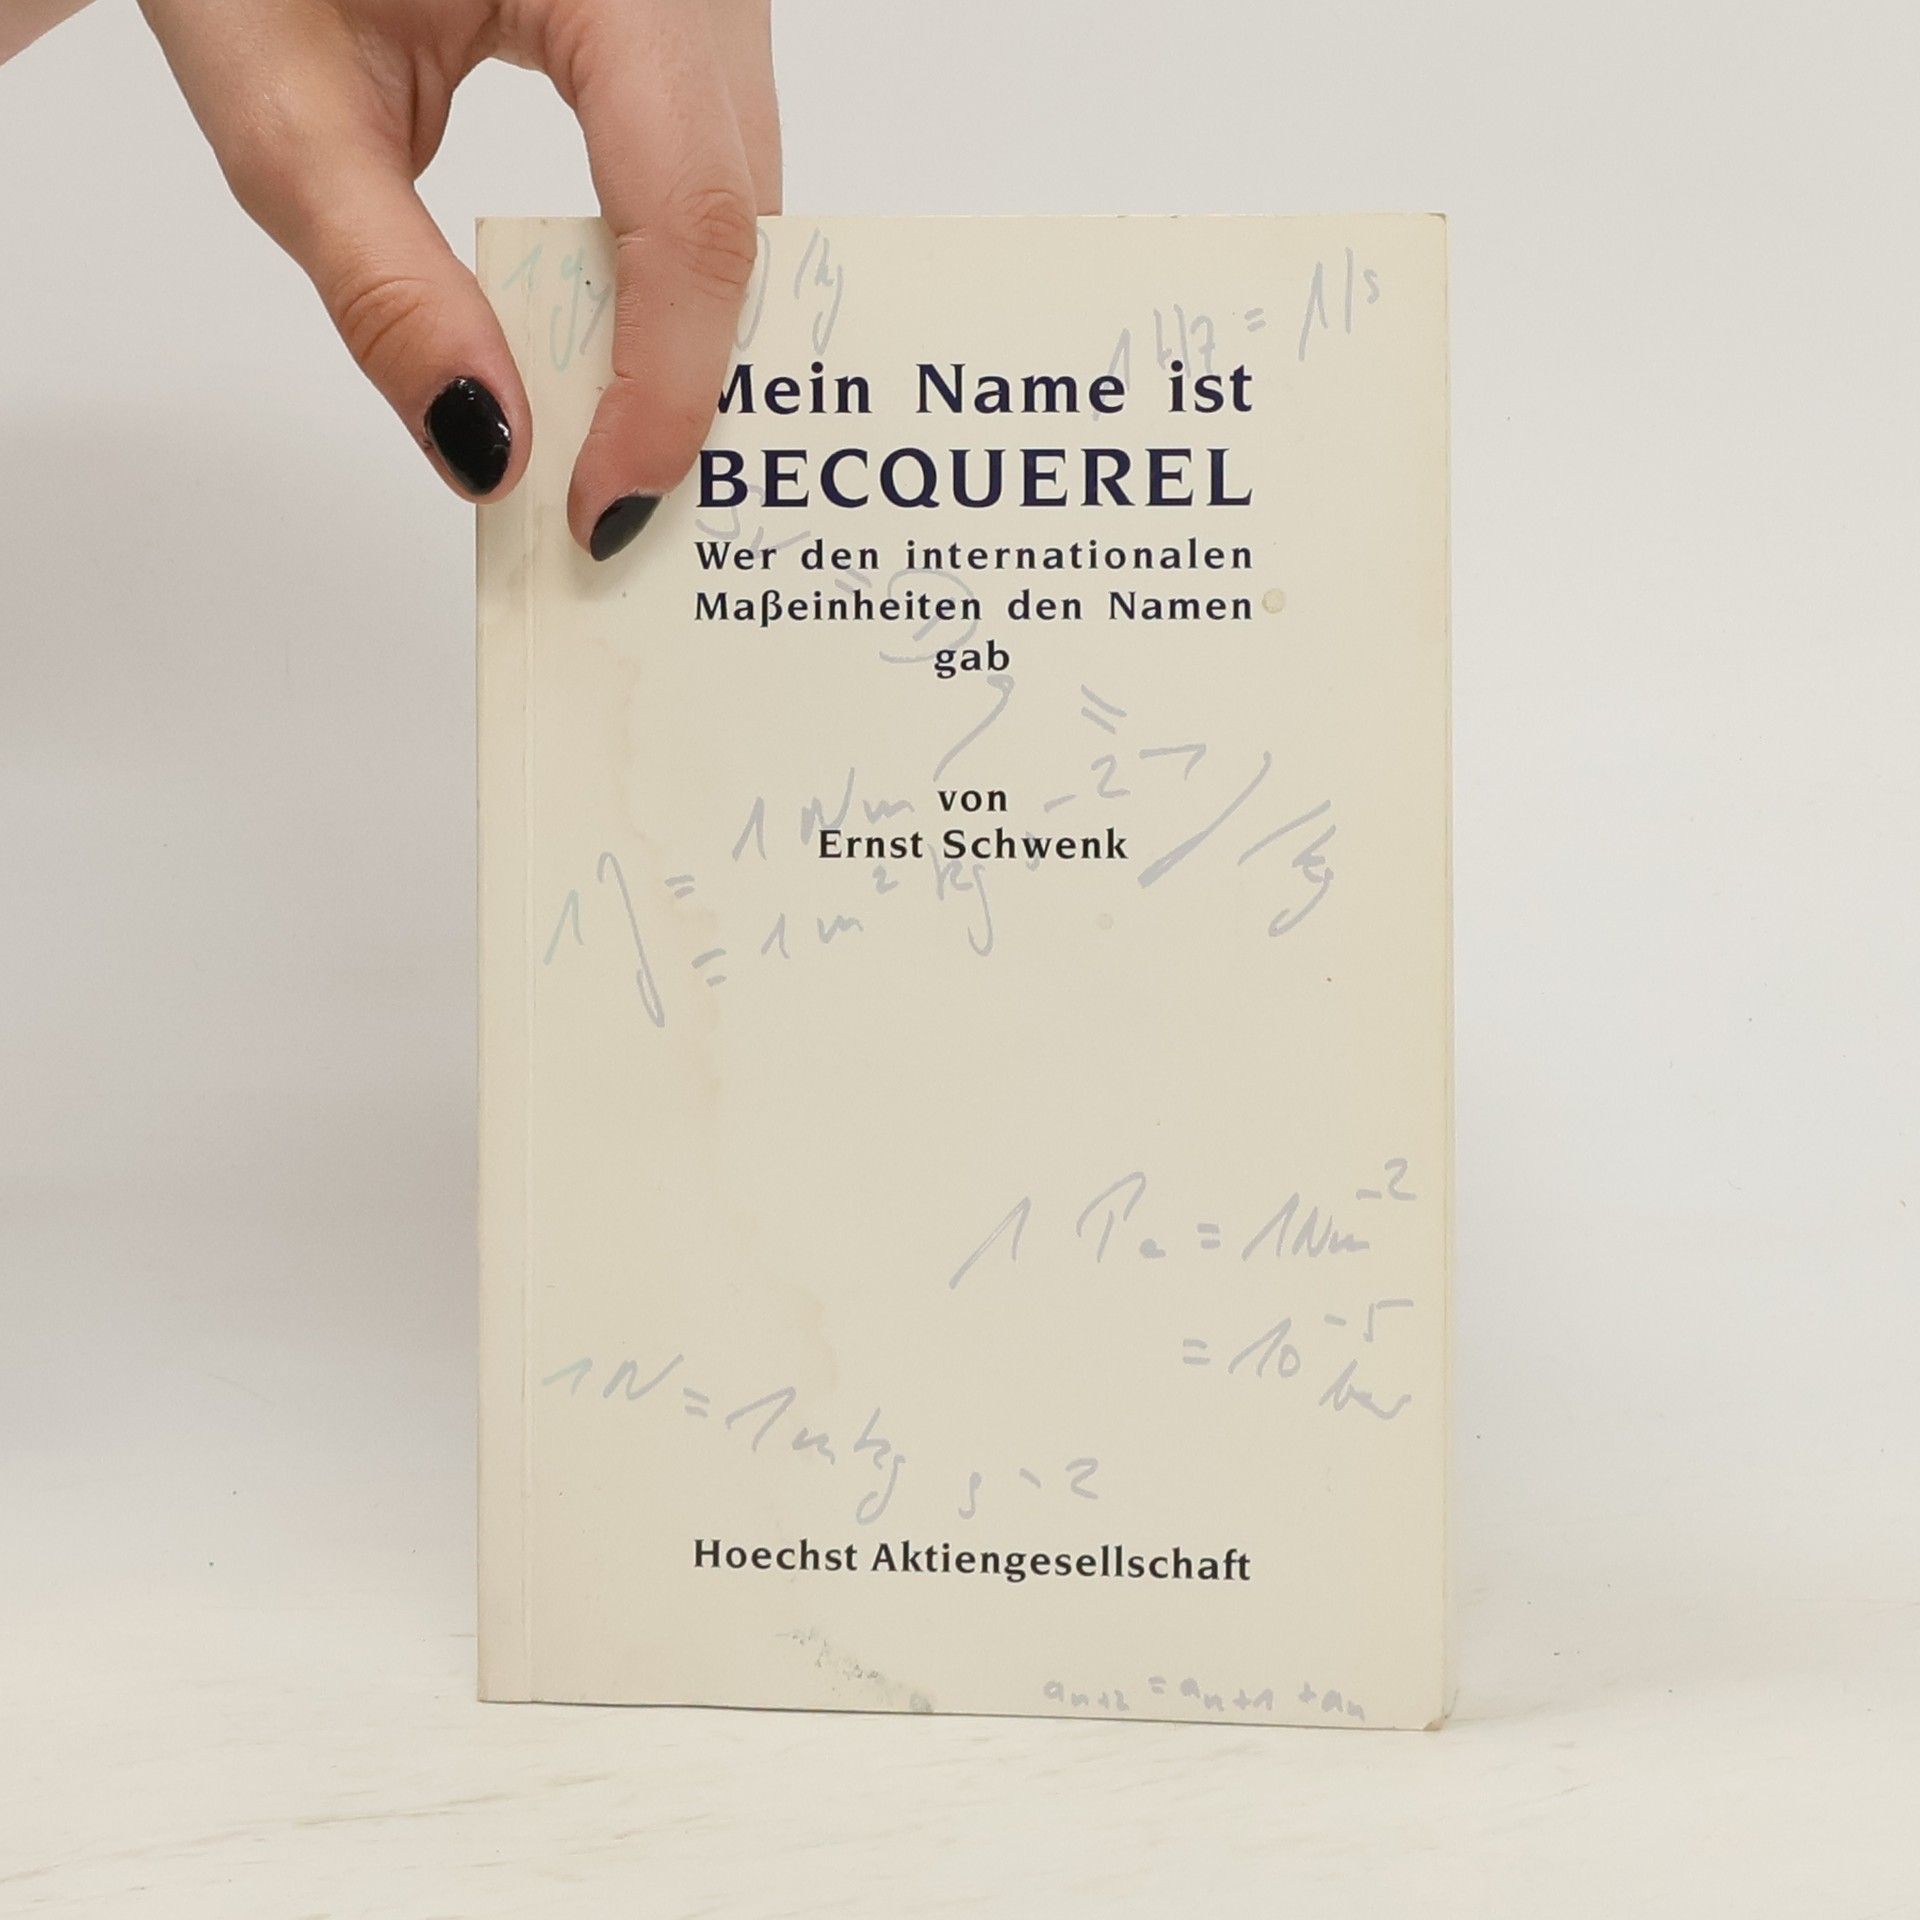 1 Gy J/kg
1 Hz = 1/s
Mein Name ist
BECQUEREL
Sv
Wer den internationalen
Maßeinheiten den Namen
gab
=
von
1 Nm
Ernst Schwenk
1 J = = 1 m² kg s⁻² = 1 J/kg
1 Pa = 1 Nm⁻²
= 10⁻⁵ bar
1 N = 1 m kg s⁻²
Hoechst Aktiengesellschaft
aₙ₊₂ = aₙ₊₁ + aₙ